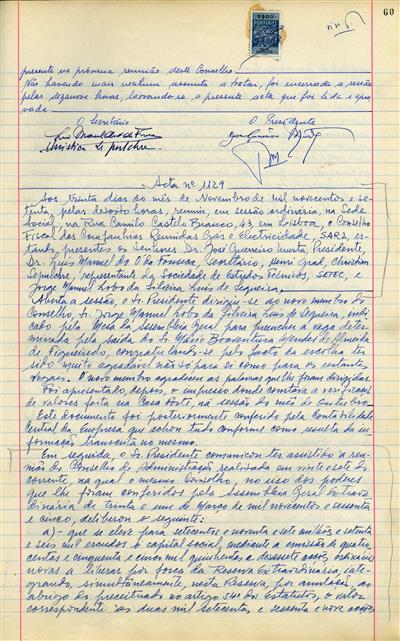 60
presente na próxima reunião deste Conselho.
Não havendo mais nenhum assunto a tratar, foi encerrada a sessão
pelas dezanove horas, lavrando-se a presente acta que foi lida e apro-
vada.
O Secretário O Presidente
Acta nº 1129
Aos trinta dias do mês de Novembro de mil novecentos e se-
tenta, pelas dezoito horas, reuniu, em sessão ordinária, na Sede
Social, na Rua Camilo Castelo Branco, 43, em Lisboa, o Conselho
Fiscal das Companhias Reunidas Gás e Electricidade, SARL es-
tando presentes os senhores Dr. José Guerreiro Murta, Presidente,
Dr. Luís Manuel da Fonseca, Secretário, Henri Grad, Christian
Sepulchre, representante da Sociedade de Estudos Técnicos, SETEC, e
Jorge Manuel Lobo da Silveira Luís de Sequeira.
Aberta a sessão, o Sr. Presidente dirigiu-se ao novo membro do
Conselho, Sr. Jorge Manuel Lobo da Silveira Luís de Sequeira, indi-
cado pela Mesa da Assembleia Geral para preencher a vaga deter-
minada pela saída do Sr. Mário Boaventura Mendes de Almeida
de Figueiredo, congratulando-se pelo facto da escolha ter
sido muito agradável não só para si como para os restantes
Vogais. O novo membro agradeceu as palavras que lhe foram dirigidas.
Foi apresentado, depois, o impresso donde constava a verificação
de valores feita na Casa Forte, na sessão do mês de Outubro.
Este documento foi posteriormente conferido pela Contabilidade
Central da Empresa que achou tudo conforme como resulta da in-
formação transcrita no mesmo.
Em seguida, o Sr. Presidente comunicou ter assistido à reu-
nião do Conselho de Administração realizada em vinte e sete do
corrente, na qual o mesmo Conselho, no uso dos poderes
que lhe foram conferidos pela Assembleia Geral Extraor-
dinária de trinta e um de Março de mil novecentos e sessenta
e cinco, deliberou o seguinte:
a) - que se eleve para setecentos e noventa e sete milhões e setenta
e seis mil escudos o capital social, mediante a emissão de quatro-
centas e cinquenta e cinco mil quinhentas e dezassete acções ordinárias
novas a liberar por força da Reserva Extraordinária, inte-
grando, simultâneamente, nesta Reserva, por anulação, ao
abrigo do preceituado no artigo 54º dos Estatutos, o valor
correspondente às duas mil setecentas e sessenta e nove acções